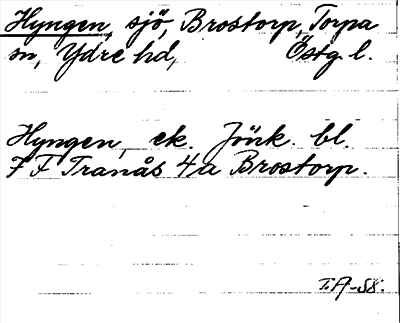 Hyngen, sjö, Brostorp, Torpa
sn, Ydre hd, Östg. l.
Hyngen, ek. Jönk. bl.
F F Tranås 4a Brostorp.
T.A-58.